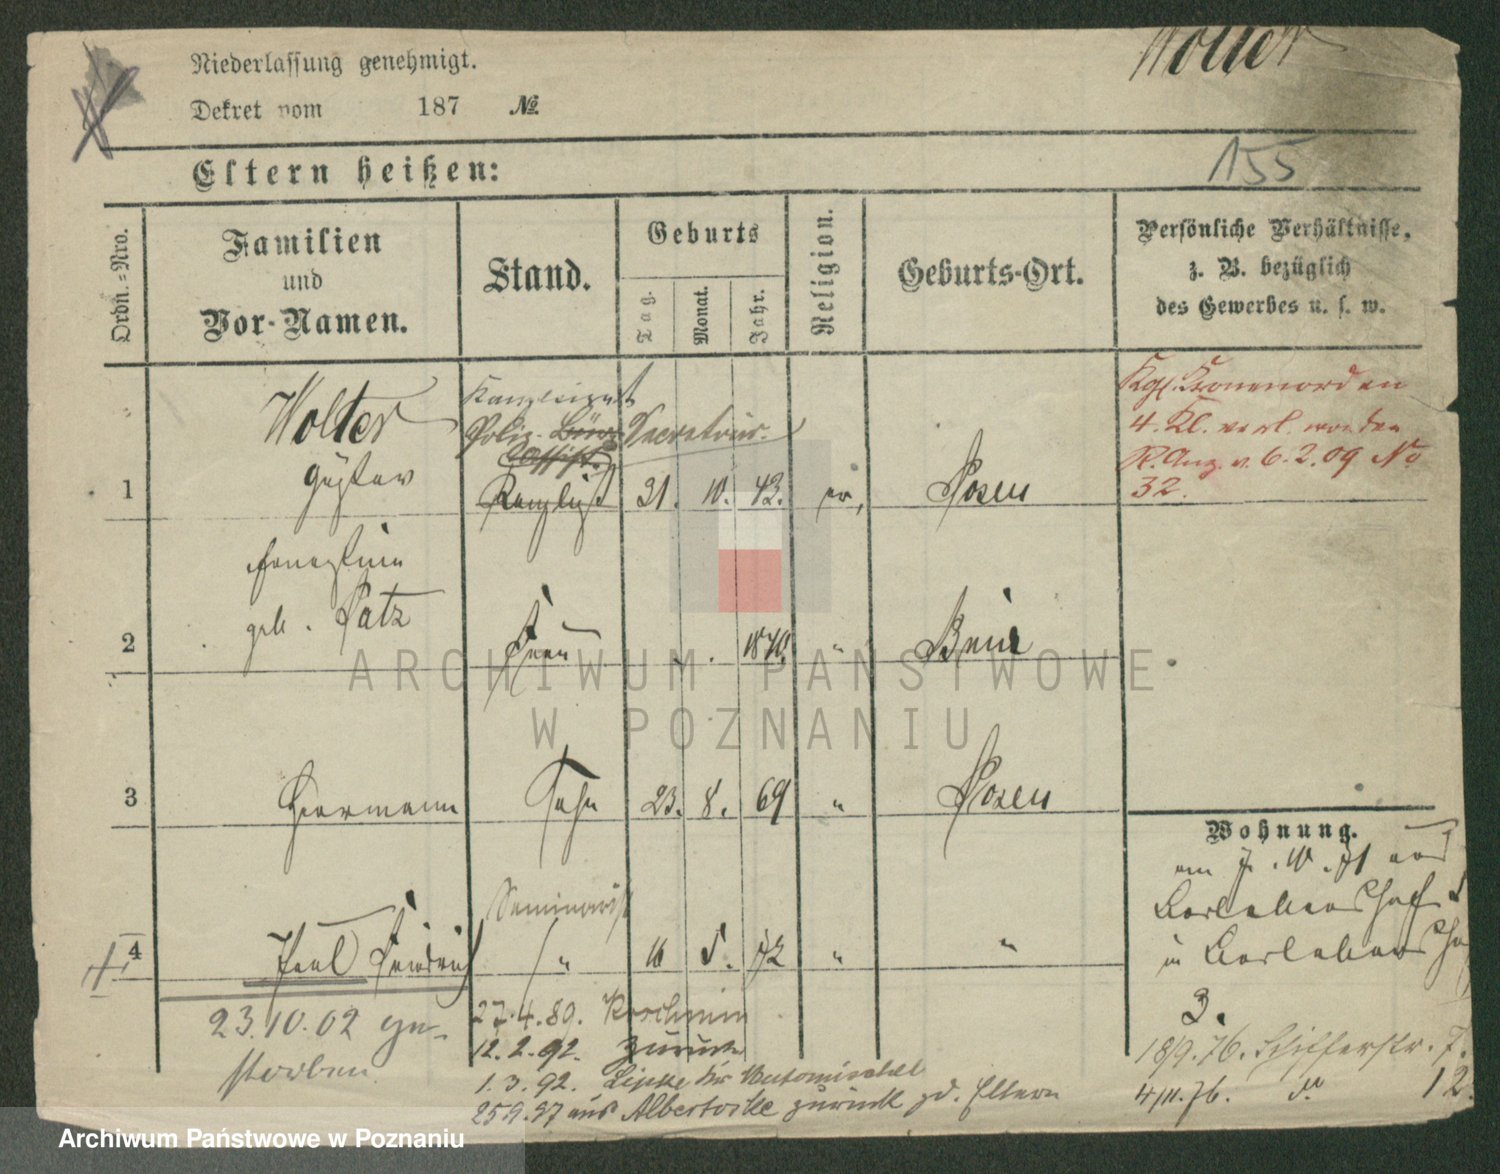 Niederlassung genehmigt.
Wolter
Dekret vom 187 №
155
Eltern heißen:
Ordn.=Nro.
Familien
und
Vor-Namen.
Stand.
Geburts
Tag.
Monat.
Jahr.
Religion.
Geburts-Ort.
Persönliche Verhältnisse,
z. B. bezüglich
des Gewerbes u. s. w.
Kgl. Kronenorden
4. Kl. verl. worden
R. Anz. v. 6.2.09 No
32.
Wolter
Gustav
Poliz. Secretair.
Kanzlist
1 31. 10. 43. ev. Posen
Ernestine
geb. Patz
2 Frau 1840. " Brin
3 Hermann Sohn 23. 8. 69 " Posen
Seminarist
4 Paul Friedrich " 16 5. 72 " "
23.10.02 ge-
storben
27.4.89. Koschmin
12.2.92. zurück
1.3.92. Lipke Kr
25.9.97 aus zurück zd. Eltern
Wohnung.
am 7. 10. 71 aus
in
3.
18/9.76. Schifferstr. 7.
4/11.76. 12.
ARCHIWUM PAŃSTWOWE
W POZNANIU
Archiwum Państwowe w Poznaniu